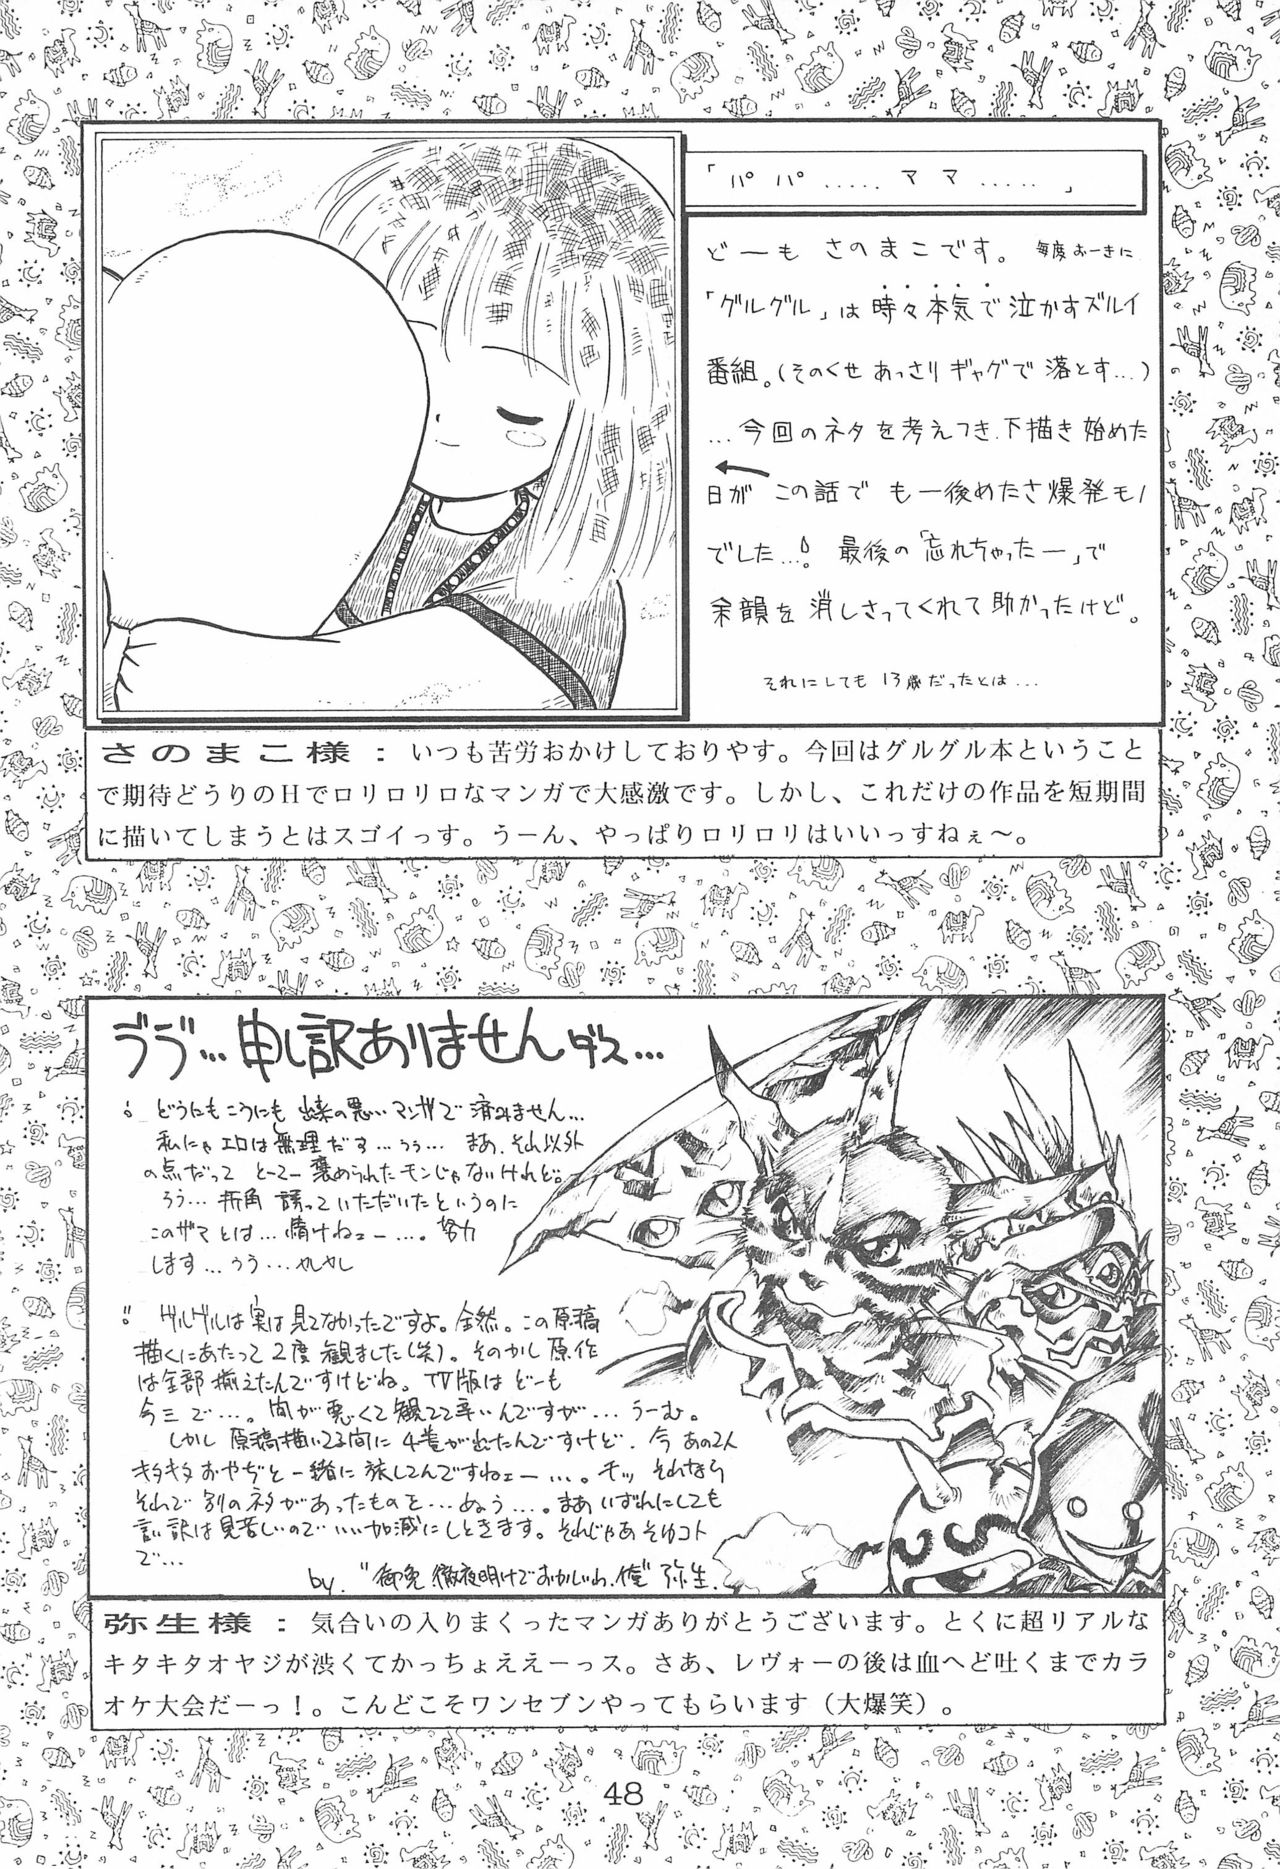 「パパ.....ママ.....」
どーも さのまこです。 毎度おーきに
「グルグル」は時々本気で泣かすズルイ
番組。(そのくせ あっさり ギャグで 落とす...)
...今回のネタを考えつき、下描き始めた
日が この話で も一後めたさ爆発モノ
でした...。 最後の「忘れちゃったー」で
余韻を 消しさってくれて助かったけど。
それにしても 13歳だったとは...
さのまこ様：いつも苦労おかけしておりやす。今回はグルグル本ということ
で期待どうりのＨでロリロリロなマンガで大感激です。しかし、これだけの作品を短期間
に描いてしまうとはスゴイっす。うーん、やっぱりロリロリはいいっすねぇ～。
ララ゛...申し訳ありませんダス...
どうにもこうにも 出来の悪いマンガで 済みません...
私にゃ エロは無理だす...ララ... まあ、それ以外
の点だって とーてー 褒められたモンじゃないけれど。
ララ... 折角 誘っていただいたというのに
このザマとは... 情けねェー...。 努力
します...ララ...
グルグルは実は見てなかったですよ。全然。この原稿
描くにあたって 2度 観ました(笑)。 そのかし 原作
は全部 揃えたんですけどね。 TV版は どーも
今三で...。間が悪くて観てて辛いんですが... うーむ。
しかし 原稿描いてる間に 4巻が出たんですけど、今 あの2人
キタキタおやぢと一緒に 旅してんですねェー...。チッ それなら
それで 別のネタがあったものを...めょう...。まあいずれにしても
言い訳は見苦しいのでいい加減にしときます。それじゃあ そゆコト
で...
by. "御免 徹夜明けでおかしいわ、俺" 弥生.
弥生様：気合いの入りまくったマンガありがとうございます。とくに超リアルな
キタキタオヤジが渋くてかっちょええーっス。さあ、レヴォーの後は血へど吐くまでカラ
オケ大会だーっ！。こんどこそワンセブンやってもらいます（大爆笑）。
48